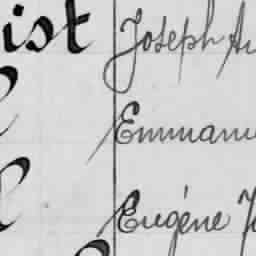 ist Joseph Au
Emmanu
Eugène J